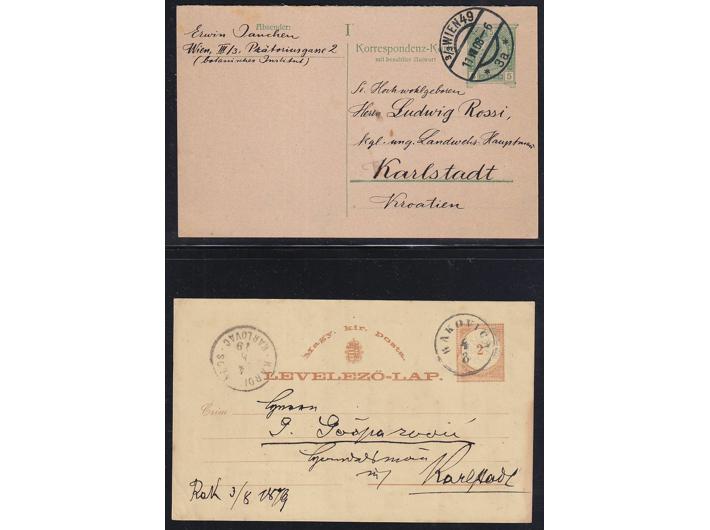 Absender:
Erwin Janchen
Wien, III/3. Prätoriusgasse 2
(botanisches Institut)
I
Korrespondenz-K
mit bezahlter Antwort
9/3 WIEN 49
11.VI.08-6
* 3a *
5
Sr. Hochwohlgeboren
Herrn Ludwig Rossi,
kgl. ung. Landwehr-Hauptmann
Karlstadt
Kroatien
Magy. kir. posta.
LEVELEZŐ-LAP.
RAKOVICA
4
8
2
KARLOVAC
Czim
Herrn
Karlstadt
Rak 3/8 1879